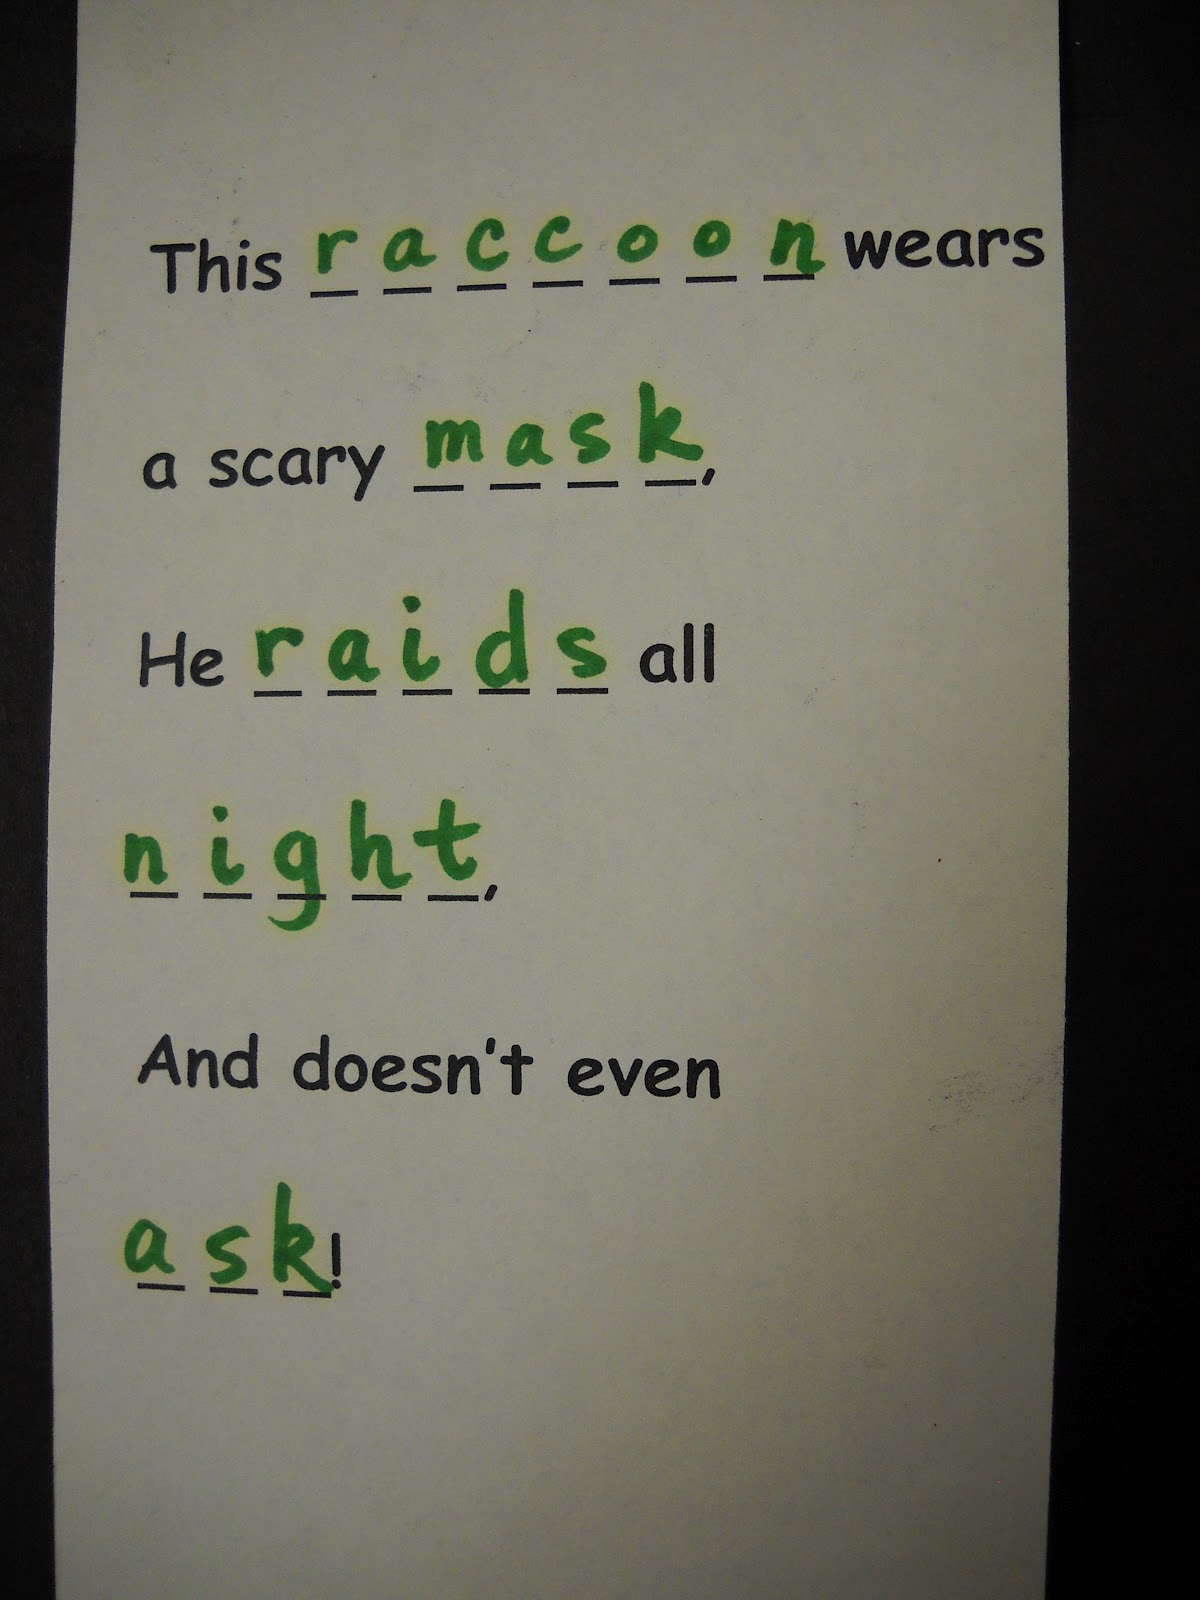 This raccoon wears
a scary mask,
He raids all
night,
And doesn't even
ask!